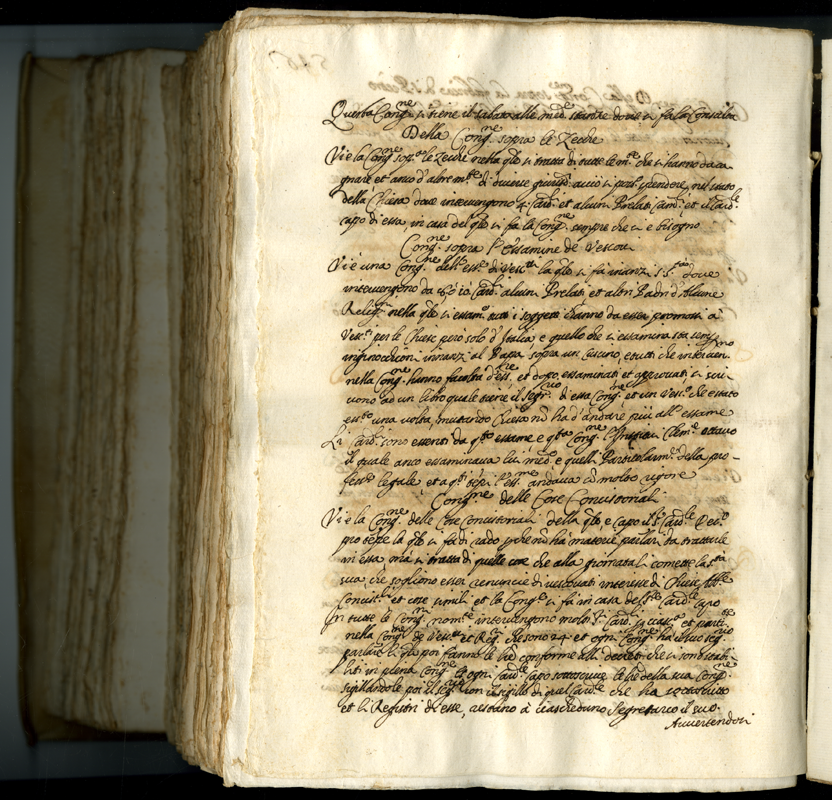 Questa Cong.ne si tiene il sabato alle med.e stanze dove si fa la Consulta
Della Cong.ne sopra le Zecche
Vi è la Cong.ne sop.a le Zecche nella q.le si tratta di tutte le m.te che si hanno da co
gnare et anco d'altre m.te di diverse acciò si poss. spendere nel stato
della Chiesa dove intervengono 4 Card.li et alcuni Prelati Cam.li et il Card.le
capo di essa in casa del q.le si fa la Cong.ne sempre che vi è bisogno
Cong.ne sopra l'Essamine de Vescovi
Vi è una Cong.ne dell'ess.e di Vesc.vi la q.le si fa inanzi S. S.tà dove
intervengono da 8 ò 10 Card.li alcuni Prelati et altri Padri d'alcune
Relig.ni nella q.le si essam.o tutti i soggetti ch'hanno da esser promossi à
Vesc.ti per le Chiese però solo d'Italia, e quello che si essamina sta sem.e
inginocchioni innanzi al Papa sopra un cuscino, e tutti che interven.no
nella Cong.ne hanno facoltà d'ess.re et dopo essaminati et approvati si scri
vono ad un libro quale tiene il Segr.rio di essa Cong.ne et un Vesc.o che è stato
ess.to una volta, mutando Chiesa nò ha d'andare più all'essame
Li Card.li sono essenti da q.to essame e q.ta Cong.ne Clem.e ottavo
il quale anco essaminava lui med.o e quelli Particolarm.e della pro-
fess.ne legale, et a q.ti andava cò molto rigore
Cong.ne delle Cose Concistoriali
Vi è la Cong.ne delle Cose Concistoriali della q.le è capo il S.r Card.le
la q.le si fa di rado perche nò ha materie da trattarsi
in essa, mà si tratta di quelle cose che alla giornata li comette la S.tà
sua che sogliono esser renuncie di vescovati interesse di Chiese
Concist.li et cose simili et la Cong.e si fa in casa dell' Card.le capo
In tutte le Cong.ni nom.te intervengono molti S.ri Card.li in
nella Cong.ne de Vesc.vi et Reg.ri che sono 24 et ogni Cong.ne ha il suo Seg.rio
li q.li poi fanno le l're conforme alli decreti che si sono stabi-
liti in plena Cong.ne et ogni Card.le capo sottoscrive le l're della sua Cong.ne
sigillandole poi il seg.rio con il sigillo di quel Card.le che ha sottoscritto
et li Registri di esse, restano à ciascheduno Segretario il suo.
Avvertendosi